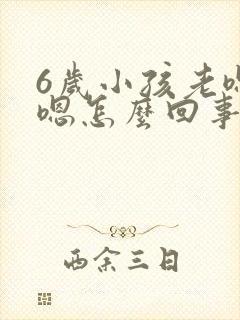 6歲小孩老嗯
嗯怎麽回事
西余三日